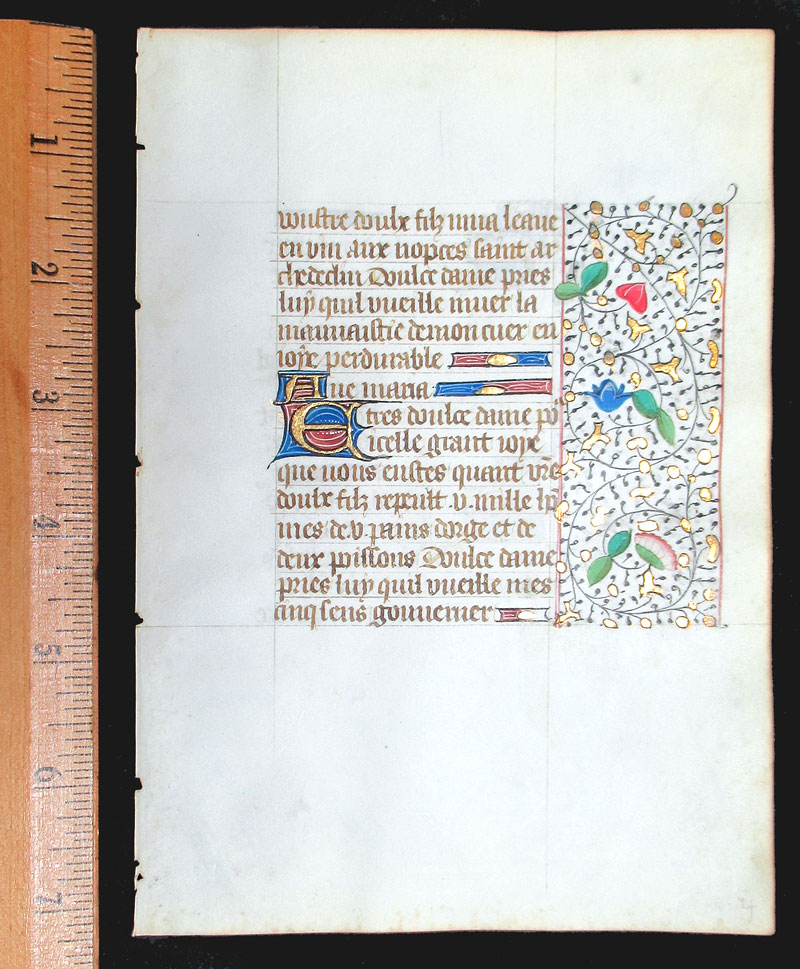 1
2
3
4
5
6
7
vostre doulx filz mua leaue
en vin aux nopces saint ar
chedeclin Doulce dame pries
luy quil vueille muer la
mauuaistie de mon cuer en
ioye perdurable
Aue maria
E tres doulce dame po
icelle grant ioye
que uous eustes quant vre
doulx filz reput .v. mille ho
mes de .v. pains dorge et de
deux poissons Doulce dame
pries luy quil vueille mes
cinq sens gouuerner